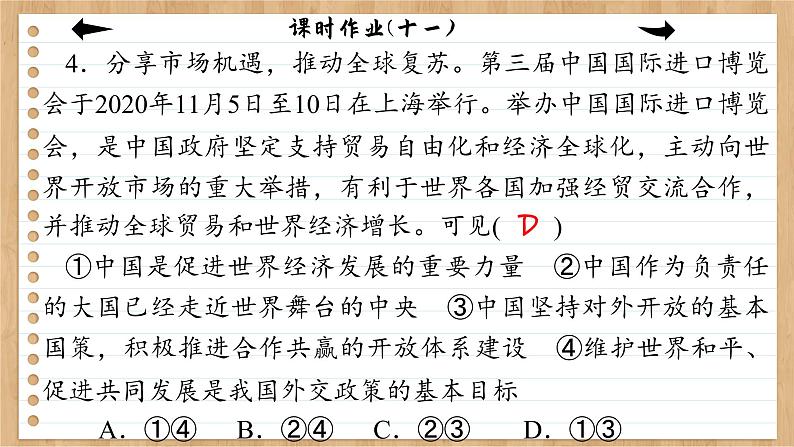 课时作业(十一)
4．分享市场机遇，推动全球复苏。第三届中国国际进口博览
会于2020年11月5日至10日在上海举行。举办中国国际进口博览
会，是中国政府坚定支持贸易自由化和经济全球化，主动向世
界开放市场的重大举措，有利于世界各国加强经贸交流合作，
并推动全球贸易和世界经济增长。可见( D )
①中国是促进世界经济发展的重要力量　②中国作为负责任
的大国已经走近世界舞台的中央　③中国坚持对外开放的基本
国策，积极推进合作共赢的开放体系建设　④维护世界和平、
促进共同发展是我国外交政策的基本目标
A．①④　B．②④　C．②③　D．①③